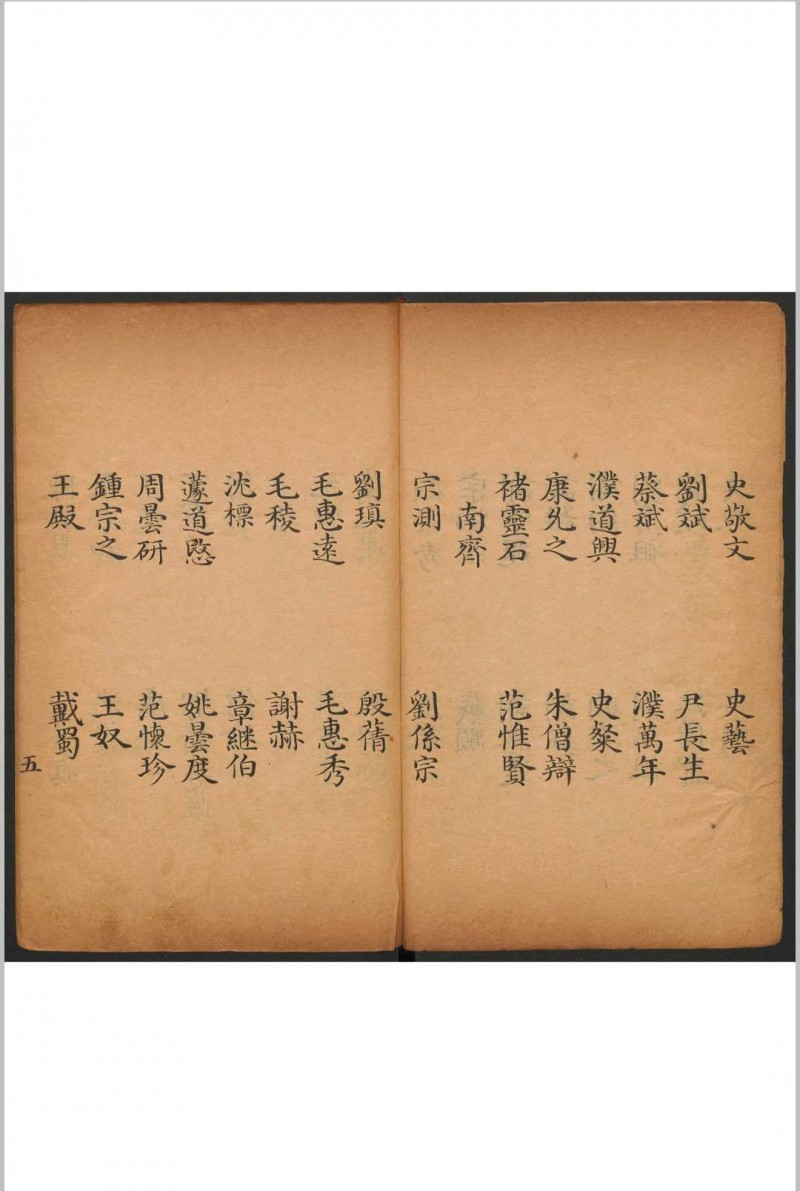 史敬文 史藝
劉斌 尹長生
蔡斌 濮萬年
濮道興 史粲
康允之 朱僧辯
褚靈石 范惟賢
南齊
宗測 劉係宗
劉瑱 殷蒨
毛惠遠 毛惠秀
毛稜 謝赫
沈標 章繼伯
蘧道愍 姚曇度
周曇研 范懷珍
鍾宗之 王奴
王殿 戴蜀
五